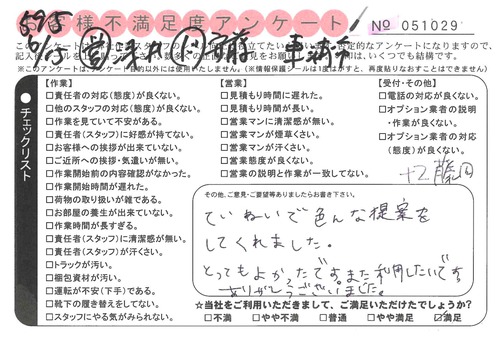 お客様不満足度アンケート
№ 051029
※このアンケートは、アンケート目的以外には使用いたしません。(情報保護シールは1度はがすと、再度貼りなおすことはできません)
チェックリスト
【作業】
□責任者の対応(態度)が良くない。
□他のスタッフの対応(態度)が良くない。
□作業を見ていて不安がある。
□責任者(スタッフ)に好感が持てない。
□お客様への挨拶が出来ていない。
□ご近所への挨拶・気遣いが無い。
□作業開始前の内容確認がなかった。
□作業開始時間が遅れた。
□荷物の取り扱いが雑である。
□お部屋の養生が出来ていない。
□作業時間が長すぎる。
□責任者(スタッフ)に清潔感が無い。
□責任者(スタッフ)が汗くさい。
□トラックが汚い。
□梱包資材が汚い。
□運転が不安(下手)である。
□靴下の履き替えをしてない。
□スタッフにやる気がみられない。
【営業】
□見積もり時間に遅れた。
□見積もり時間が長い。
□営業マンに清潔感が無い。
□営業マンが煙草くさい。
□営業マンが汗くさい。
□営業態度が良くない。
□営業の説明と作業が一致してない。
【受付・その他】
□電話の対応が良くない。
□オプション業者の説明
・作業が良くない。
□オプション業者の対応
(態度)が良くない。
その他、ご意見・ご要望等ありましたらお書き下さい。
ていねいで色んな提案を
してくれました。
とってもよかったです。また利用したいです。
ありがとうございました。
☆当社をご利用いただきまして、ご満足いただけたでしょうか?
□不満 □やや不満 □普通 □やや満足 ☑満足